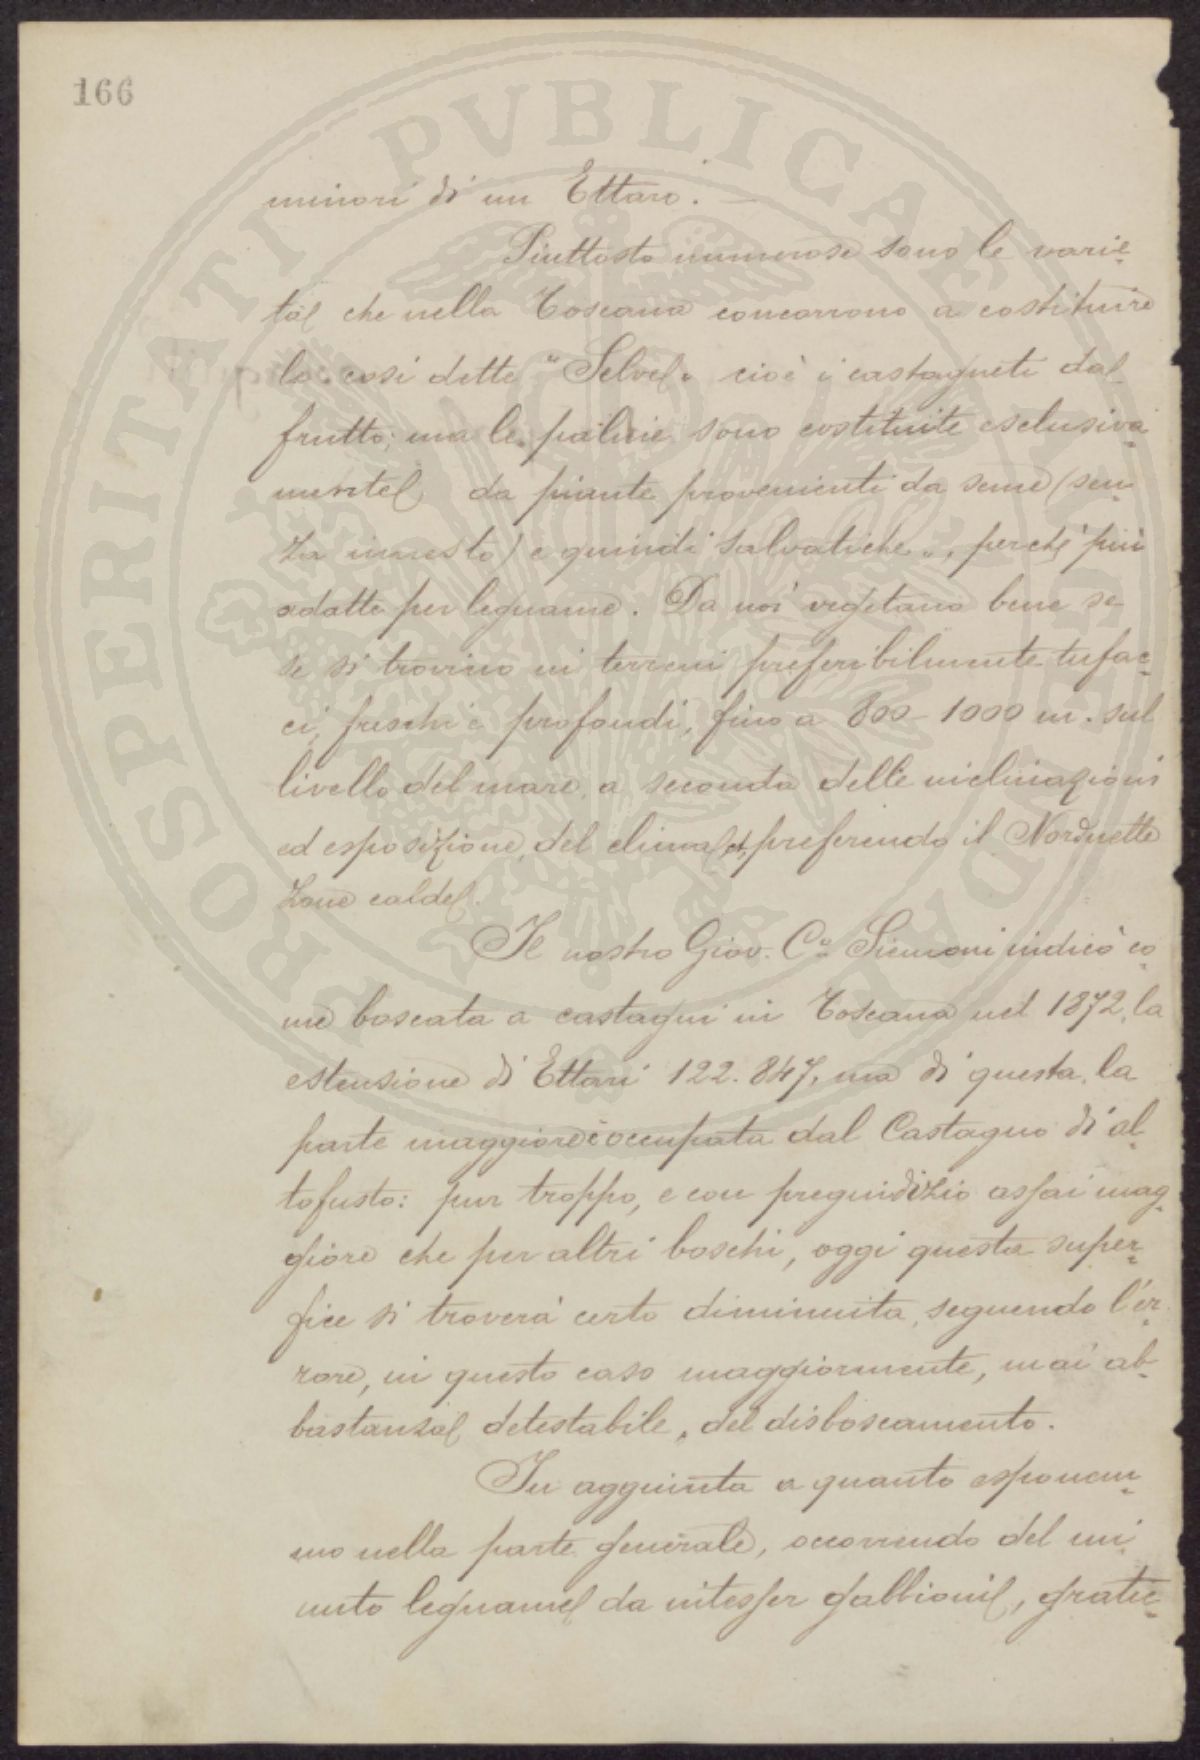 166
minori di un Ettaro.
Piuttosto numerose sono le varie-
tà che nella Toscana concorrono a costituire
le così dette "Selve" cioè i castagneti dal
frutto; ma le paline sono costituite esclusiva-
mente da piante provenienti da seme (sen-
za innesto) e quindi "salvatiche", perché più
adatte per legname. Da noi vegetano bene se
se si trovino in terreni preferibilmente tufac-
ci, freschi e profondi, fino a 800-1000 m. sul
livello del mare, a seconda delle inclinazioni
ed esposizione, del clima, et, preferendo il Nord nelle
zone calde.
Il nostro Giov. C. Siemoni indicò co-
me boscata a castagni in Toscana nel 1872, la
estensione di Ettari 122.847, ma di questa, la
parte maggiore è occupata dal Castagno di al-
tofusto: pur troppo, e con pregiudizio assai mag-
giore che per altri boschi, oggi questa super-
fice si troverà certo diminuita, seguendo l'er-
rore, in questo caso maggiormente, mai ab-
bastanza detestabile, del disboscamento.
In aggiunta a quanto esponem-
mo nella parte generale, occorrendo del mi-
nuto legname da intesser gabbioni, gratic-
PROSPERITATI PVBLICAE AVGENDAE